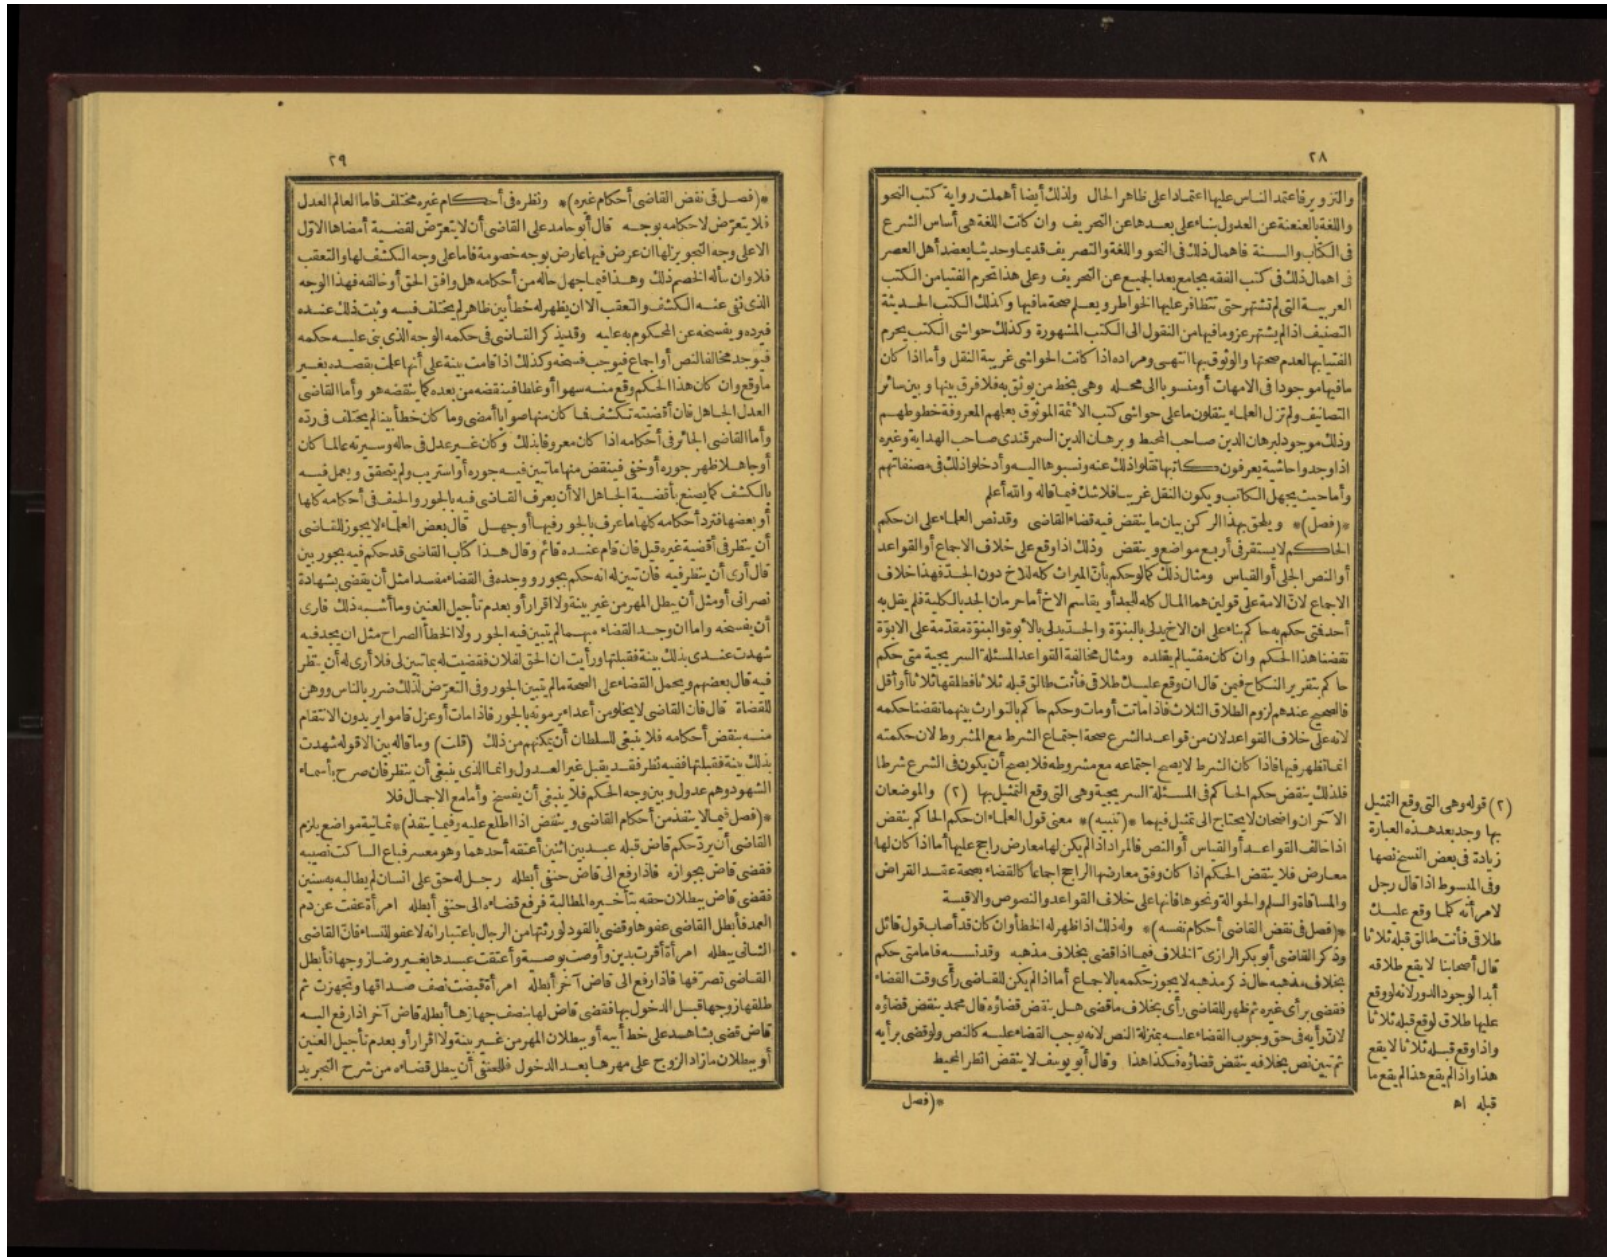 ٢٨
والتزوير فاعتمد الناس عليها اعتمادا على ظاهر الحال ولذلك أيضا أهملت رواية كتب النحو
واللغة بالعنعنة عن العدول بناء على بعدها عن التحريف وان كانت اللغة هى أساس الشرع
فى الكتاب والسنة فاهمال ذلك فى النحو واللغة والتصريف قديما وحديثا يعضد أهل العصر
فى اهمال ذلك فى كتب الفقه بجامع بعد الجميع عن التحريف وعلى هذا تحرم الفتيا من الكتب
الغريبة التى لم تشتهر حتى تتظافر عليها الخواطر ويعلم صحة مافيها وكذلك الكتب الحديثة
التصنيف اذا لم يشتهر عزو مافيها من النقول الى الكتب المشهورة وكذلك حواشى الكتب يحرم
الفتيا بها لعدم صحتها والوثوق بها انتهى ومراده اذا كانت الحواشى غريبة النقل وأما اذا كان
مافيها موجودا فى الامهات أو منسوبا الى محله وهى بخط من يوثق به فلا فرق بينها وبين سائر
التصانيف ولم تزل العلماء ينقلون ما على حواشى كتب الائمة الموثوق بعلمهم المعروفة خطوطهم
وذلك موجود لبرهان الدين صاحب المحيط وبرهان الدين السمرقندى صاحب الهداية وغيره
اذا وجدوا حاشية يعرفون كاتبها نقلوا ذلك عنه ونسبوها اليه وأدخلوا ذلك فى مصنفاتهم
وأما حيث يجهل الكاتب ويكون النقل غريبا فلا شك فيما قاله والله أعلم
*(فصل)* ويلحق بهذا الركن بيان ما ينقض فيه قضاء القاضى وقد نص العلماء على ان حكم
الحاكم لا يستقر فى أربع مواضع وينقض وذلك اذا وقع على خلاف الاجماع أو القواعد
أو النص الجلى أو القياس ومثال ذلك كما لو حكم بأن الميراث كله للاخ دون الجد فهذا خلاف
الاجماع لان الامة على قولين هما المال كله للجد أو يقاسم الاخ أما حرمان الجد بالكلية فلم يقل به
أحد فتى حكم به حاكم بناء على ان الاخ يدلى بالبنوة والجد يدلى بالأبوة والبنوة مقدمة على الابوة
نقضنا هذا الحكم وان كان مفتيا لم يقلده ومثال مخالفة القواعد المسئلة السريجية متى حكم
حاكم بتقرير النكاح فيمن قال ان وقع عليك طلاقى فأنت طالق قبله ثلاثا فطلقها ثلاثا أو أقل
فالصحيح عندهم لزوم الطلاق الثلاث فاذا ماتت أو مات وحكم حاكم بالتوارث بينهما نقضنا حكمه
لانه على خلاف القواعد لان من قواعد الشرع صحة اجتماع الشرط مع المشروط لان حكمته
انما تظهر فيها فاذا كان الشرط لا يصح اجتماعه مع مشروطه فلا يصح أن يكون فى الشرع شرطا
فلذلك ينقض حكم الحاكم فى المسئلة السريجية وهى التى وقع التمثيل بها (٢) والموضعان
الآخران واضحان لا يحتاج الى تمثيل فيهما *(تنبيه)* معنى قول العلماء ان حكم الحاكم ينقض
اذا خالف القواعد أو القياس أو النص فالمراد اذا لم يكن لها معارض راجح عليها أما اذا كان لها
معارض فلا ينقض الحكم اذا كان وفق معارضها الراجح اجماعا كالقضاء بصحة عقد القراض
والمساقاة والسلم والحوالة ونحوها فانها على خلاف القواعد والنصوص والاقيسة
*(فصل فى نقض القاضى أحكام نفسه)* وله ذلك اذا ظهر له الخطأ وان كان قد أصاب قول قائل
وذكر القاضى أبو بكر الرازى الخلاف فيما اذا قضى بخلاف مذهبه وقد نسيه فاما متى حكم
بخلاف مذهبه حال ذكر مذهبه لا يجوز حكمه بالاجماع أما اذا لم يكن للقاضى رأى وقت القضاء
فقضى برأى غيره ثم ظهر للقاضى رأى بخلاف ماقضى هل ينقض قضاؤه قال محمد ينقض قضاؤه
لان رأيه فى حق وجوب القضاء عليه بمنزلة النص لانه يوجب القضاء عليه كالنص ولو قضى برأيه
ثم تبين نص بخلافه ينقض قضاؤه فكذا هذا وقال أبو يوسف لا ينقض انظر المحيط
*(فصل
(٢) قوله وهى التى وقع التمثيل
بها وجد بعد هذه العبارة
زيادة فى بعض النسخ نصها
وفى المبسوط اذا قال رجل
لامرأته كلما وقع عليك
طلاقى فأنت طالق قبله ثلاثا
قال أصحابنا لا يقع طلاقه
أبدا لوجود الدور لانه لو وقع
عليها طلاق لوقع قبله ثلاثا
واذا وقع قبله ثلاثا لا يقع
هذا واذا لم يقع هذا لم يقع ما
قبله اه
٢٩
*(فصل فى نقض القاضى أحكام غيره)* ونظره فى أحكام غيره مختلف فاما العالم العدل
فلا يتعرض لاحكامه بوجه قال أبو حامد على القاضى أن لا يتعرض لقضية أمضاها الاول
الا على وجه التجويز لها ان عرض فيها عارض بوجه خصومة فاما على وجه الكشف لها والتعقب
فلا وان سأله الخصم ذلك وهذا فيما جهل حاله من أحكامه هل وافق الحق أو خالفه فهذا الوجه
الذى نفى عنه الكشف والتعقب الا ان يظهر له خطأ بين ظاهر لم يختلف فيه وثبت ذلك عنده
فيرده ويفسخه عن المحكوم به عليه وقد يذكر القاضى فى حكمه الوجه الذى بنى عليه حكمه
فيوجد مخالفا لنص أو اجماع فيوجب فسخه وكذلك اذا قامت بينة على أنها علمت بقصده بغير
ما وقع وان كان هذا الحكم وقع منه سهوا أو غلطا فينقضه من بعده كما ينقضه هو وأما القاضى
العدل الجاهل فان أقضيته تكشف فما كان منها صوابا أمضى وما كان خطأ بينا لم يختلف فى رده
وأما القاضى الجائر فى أحكامه اذا كان معروفا بذلك وكان غير عدل فى حاله وسيرته عالما كان
أو جاهلا ظهر جوره أو خفى فينقض منها ماتبين فيه جوره أو استريب ولم يتحقق ويعمل فيه
بالكشف كما يصنع بأقضية الجاهل الا أن يعرف القاضى فيه بالجور والحيف فى أحكامه كلها
أو بعضها فترد أحكامه كلها ما عرف بالجور فيها أو جهل قال بعض العلماء لا يجوز للقاضى
أن ينظر فى أقضية غيره قيل فان قام عنده قائم وقال هذا كتاب القاضى قد حكم فيه بجور بين
قال أرى أن ينظر فيه فان تبين له انه حكم بجور ووجده فى القضاء مفسدا مثل أن يقضى بشهادة
نصرانى أو مثل أن يبطل المهر من غير بينة ولا اقرار أو بعدم تأجيل العنين وما أشبه ذلك فأرى
أن يفسخه واما ان وجد القضاء مبهما لم يتبين فيه الجور ولا الخطأ الصراح مثل ان يجد فيه
شهدت عندى بذلك بينة فقبلتها ورأيت ان الحق لفلان فقضيت له بما تبين لى فلا أرى له أن ينظر
فيه قال بعضهم ويحمل القضاء على الصحة مالم يتبين الجور وفى التعرض لذلك ضرر بالناس ووهن
للقضاة قال فان القاضى لا يخلو من أعداء يرمونه بالجور فاذا مات أو عزل قاموا يريدون الانتقام
منه بنقض أحكامه فلا ينبغى للسلطان أن يمكنهم من ذلك (قلت) وما قاله بين الا قوله شهدت
بذلك بينة فقبلتها ففيه نظر فقد يقبل غير العدول وانما الذى ينبغى أن ينظر فان صرح بأسماء
الشهود وهم عدول وبين وجه الحكم فلا ينبغى أن يفسخ وأما مع الاجمال فلا
*(فصل فيما لا ينفذ من أحكام القاضى وينقض اذا اطلع عليه وفيما ينفذ)* ثمانية مواضع يلزم
القاضى أن يرد حكم قاض قبله عبد بين اثنين أعتقه أحدهما وهو معسر فباع الساكت نصيبه
فقضى قاض بجوازه فاذا رفع الى قاض حنفى أبطله رجل له حق على انسان لم يطالبه به سنين
فقضى قاض ببطلان حقه بتأخيره المطالبة فرفع قضاءه الى حنفى أبطله امرأة عفت عن دم
العمد فأبطل القاضى عفوها وقضى بالقود لورثتها من الرجال باعتبار انه لا عفو للنساء فان القاضى
الثانى يبطله امرأة أقرت بدين وأوصت بوصية وأعتقت عبدها بغير رضا زوجها فأبطل
القاضى تصرفها فاذا رفع الى قاض آخر أبطله امرأة قبضت نصف صداقها وتجهزت ثم
طلقها زوجها قبل الدخول بها فقضى قاض لها بنصف جهازها أبطله قاض آخر اذا رفع اليه
قاض قضى بشاهد على خط أبيه أو ببطلان المهر من غير بينة ولا اقرار أو بعدم تأجيل العنين
أو ببطلان ما زاد الزوج على مهرها بعد الدخول فللحنفى أن يبطل قضاءه من شرح التجريد